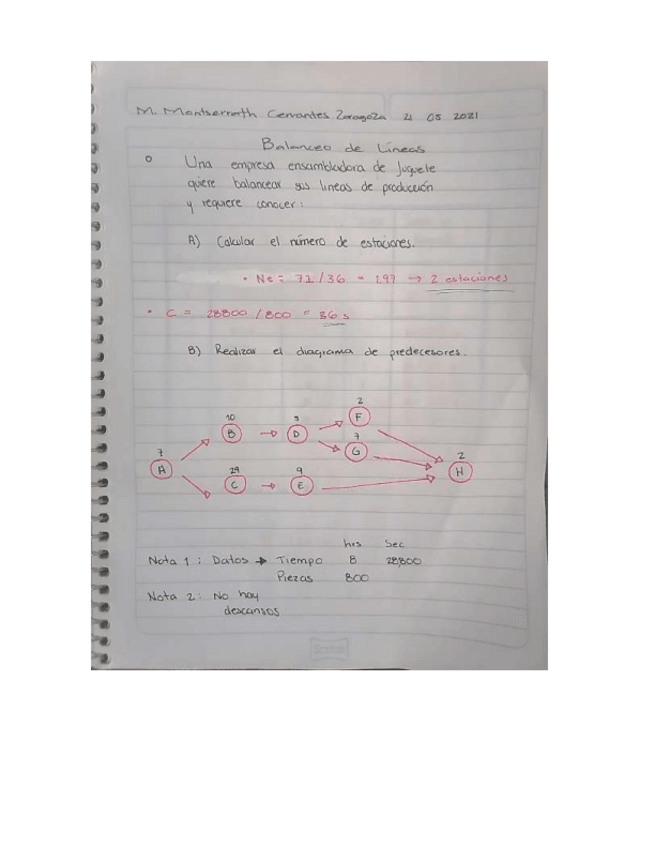 M. Montserrath Cervantes Zaragoza 21 05 2021
Balanceo de Líneas
Una empresa ensambladora de juguete
quiere balancear sus líneas de producción
y requiere conocer:
A) Calcular el número de estaciones.
• Ne = 71/36 = 1.97 → 2 estaciones
• C = 28800/800 = 36 s
B) Realizar el diagrama de predecesores.
2
10 5 F
7 B → D 7
A G 2
29 9 H
C → E
hrs Sec
Nota 1: Datos → Tiempo 8 28,800
Piezas 800
Nota 2: No hay
descansos
Scribe